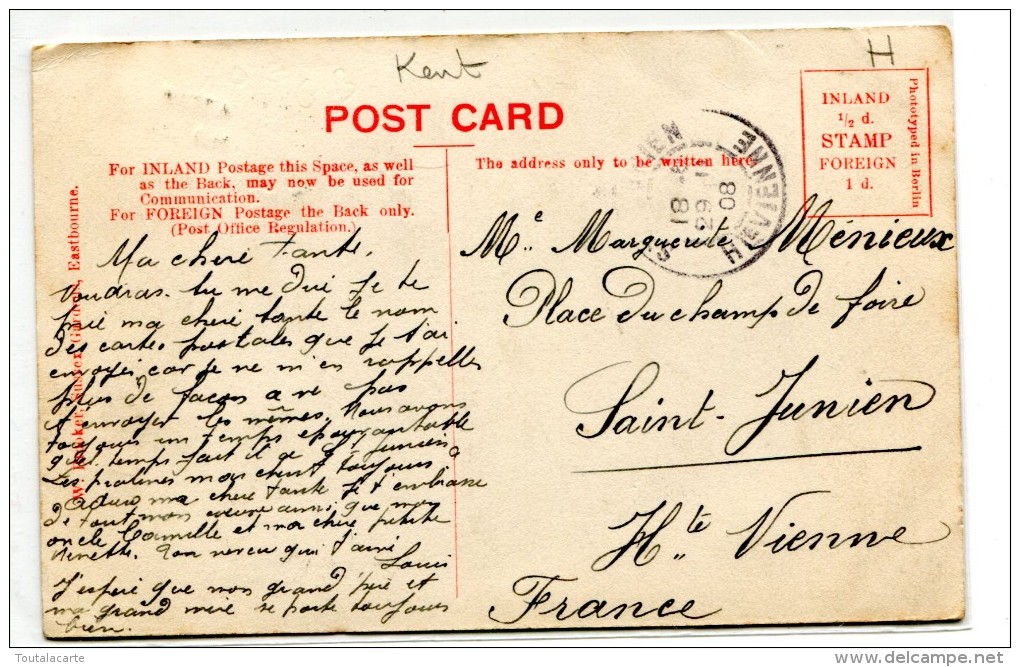 Kent
H
POST CARD
For INLAND Postage this Space, as well
as the Back, may now be used for
Communication.
For FOREIGN Postage the Back only.
(Post Office Regulation.)
The address only to be written here.
INLAND
½ d.
STAMP
FOREIGN
1 d.
Phototyped in Berlin
Eastbourne.
Ma cheré tante.
Voudras. tu me dire Je te
prie ma cheré tante le nom
des cartes postales que je t'ai
envoyés car je ne m'en rappelles
plus de facons a ne pas
t'envoyer les mêmes. Nous avons
toujours un temps épouvantable
quel temps fait il a St Junien
Les pralines mon chent toujours
adieu ma chere tante Je t'embrasse
de tout mon coeur ainsi que mon
oncle Camille et ma chere petite
Ton neveu qui t'aime
Louis
J'espere que mon grand père et
ma grand mère se porte toujours
bien.
Me Marguerite Ménieux
Place du champ de foire
Saint-Junien
Hte Vienne
France
Toutalacarte